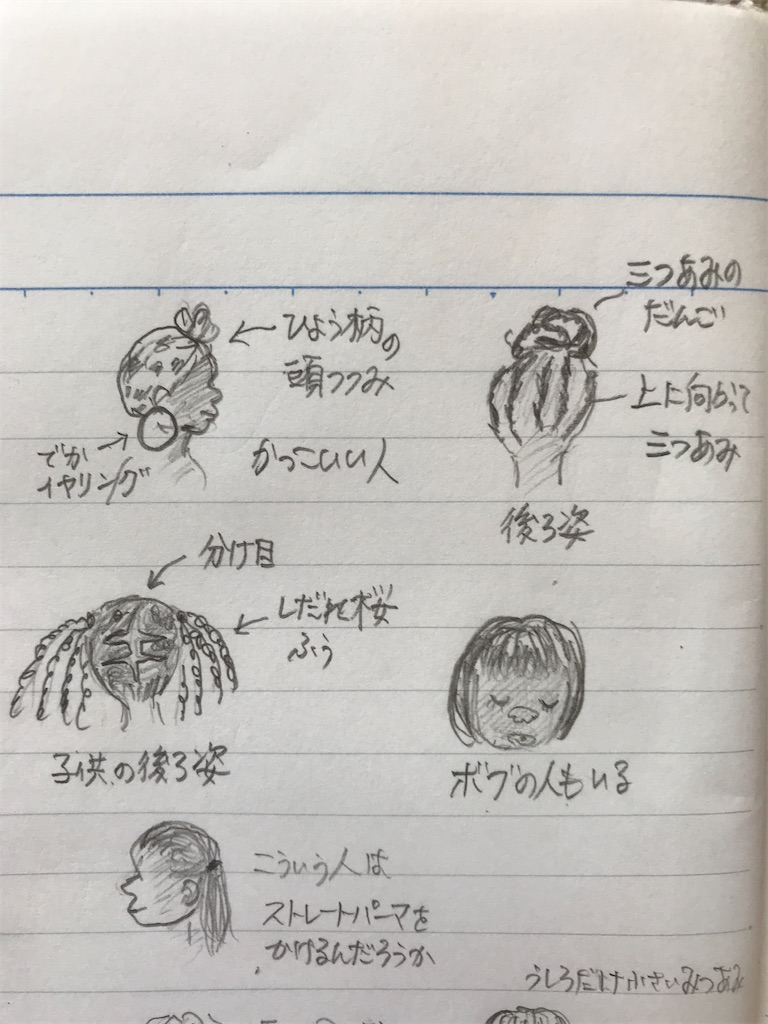 三つあみの
だんご
ひょう柄の
頭つつみ
上に向かって
三つあみ
でか
イヤリング
かっこいい人
後ろ姿
分け目
しだれ桜
ふう
子供の後ろ姿
ボブの人もいる
こういう人は
ストレートパーマを
かけるんだろうか
うしろだけ小さいみつあみ